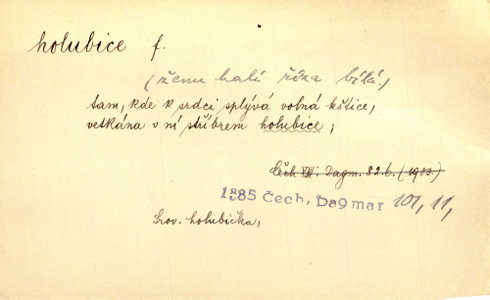 holubice f.
(ženu halí říza bílá,)
tam, kde k srdci splývá volná kštice,
vetkána v ní stříbrem holubice;
Čch VII. Dagm. 82.b. (1903.)
1885 Čech, Dagmar 101, 11,
Srov. holubička,